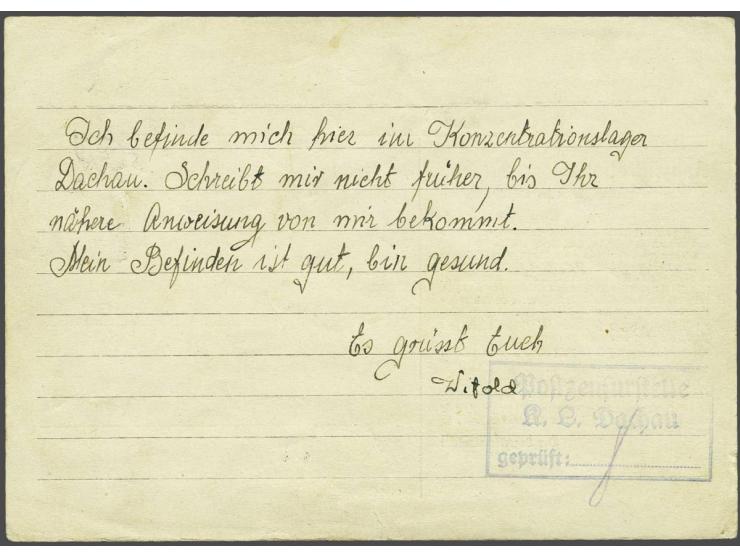 Ich befinde mich hier im Konzentrationslager
Dachau. Schreibt mir nicht früher, bis Ihr
nähere Anweisung von mir bekommt.
Mein Befinden ist gut, bin gesund.
Es grüsst Euch
Witold
Postzensurstelle
K. L. Dachau
geprüft: